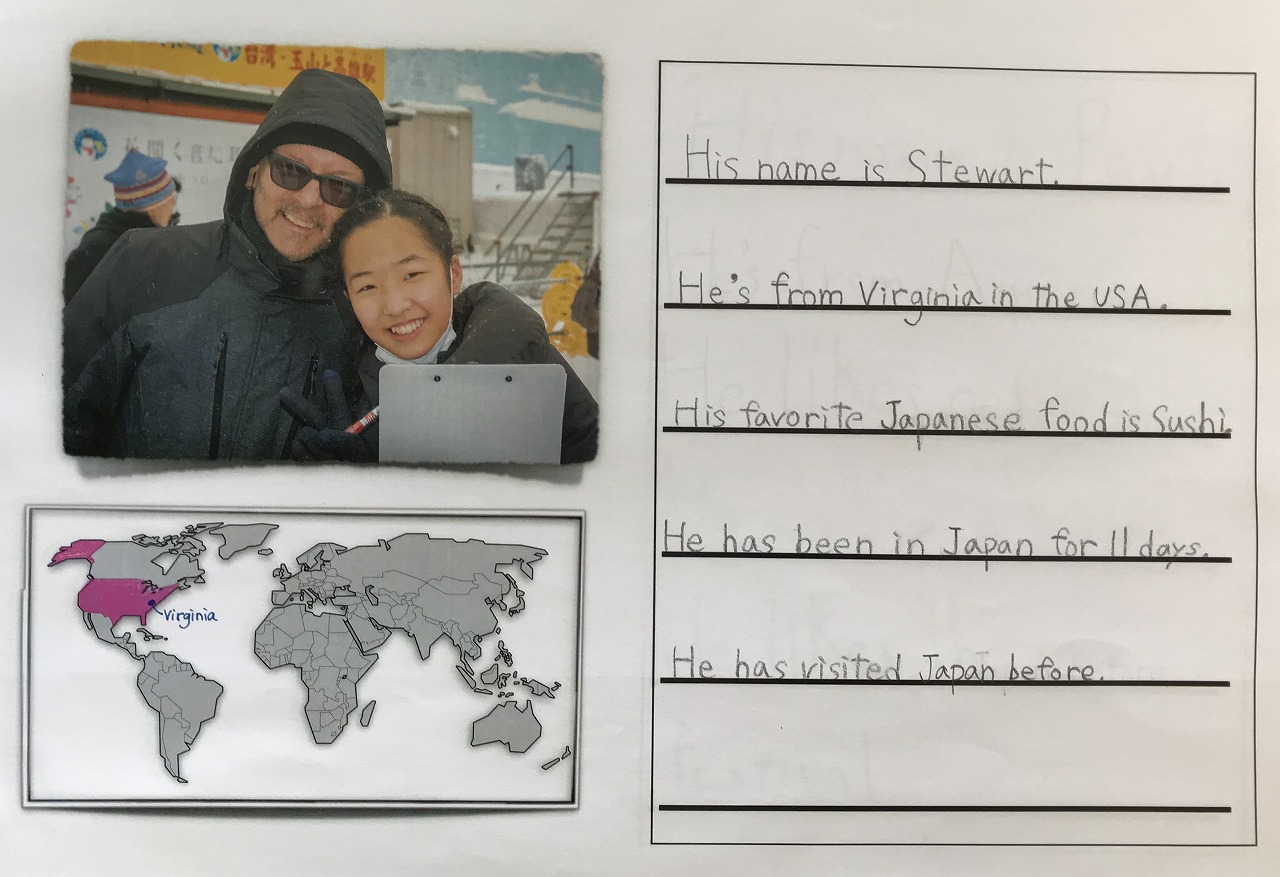 台湾・玉山と高雄駅
His name is Stewart.
He's from Virginia in the USA.
His favorite Japanese food is Sushi.
He has been in Japan for 11 days.
He has visited Japan before.
Virginia